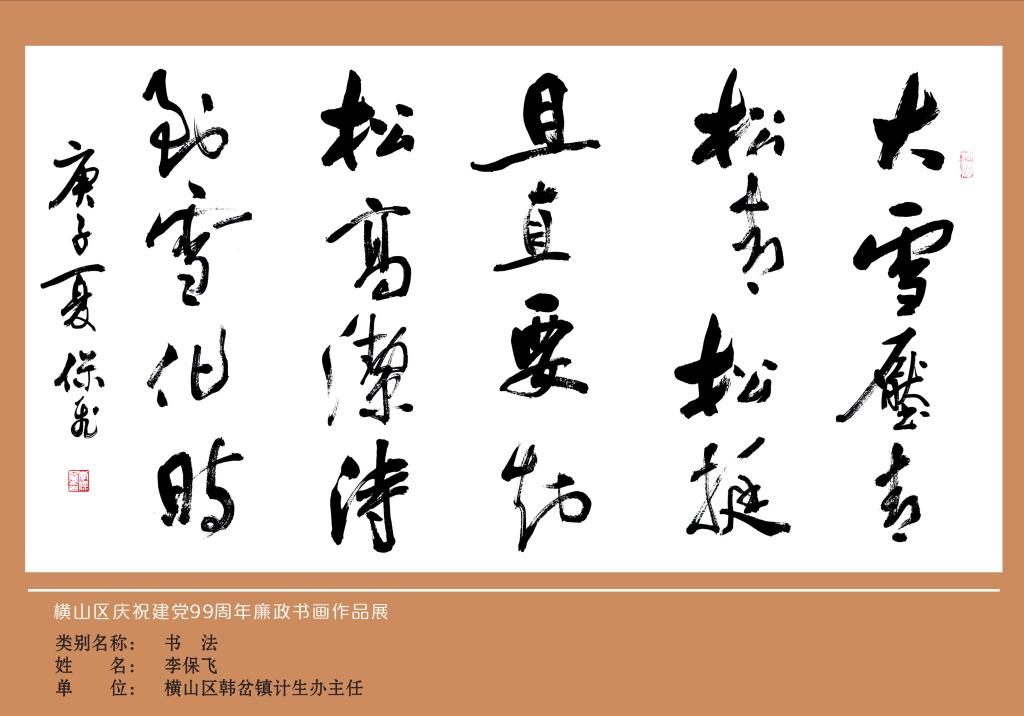 大雪壓青
松青松挺
且直要知
松高潔待
到雪化時
庚子夏保飛
横山区庆祝建党99周年廉政书画作品展
类别名称： 书 法
姓 名： 李保飞
单 位： 横山区韩岔镇计生办主任